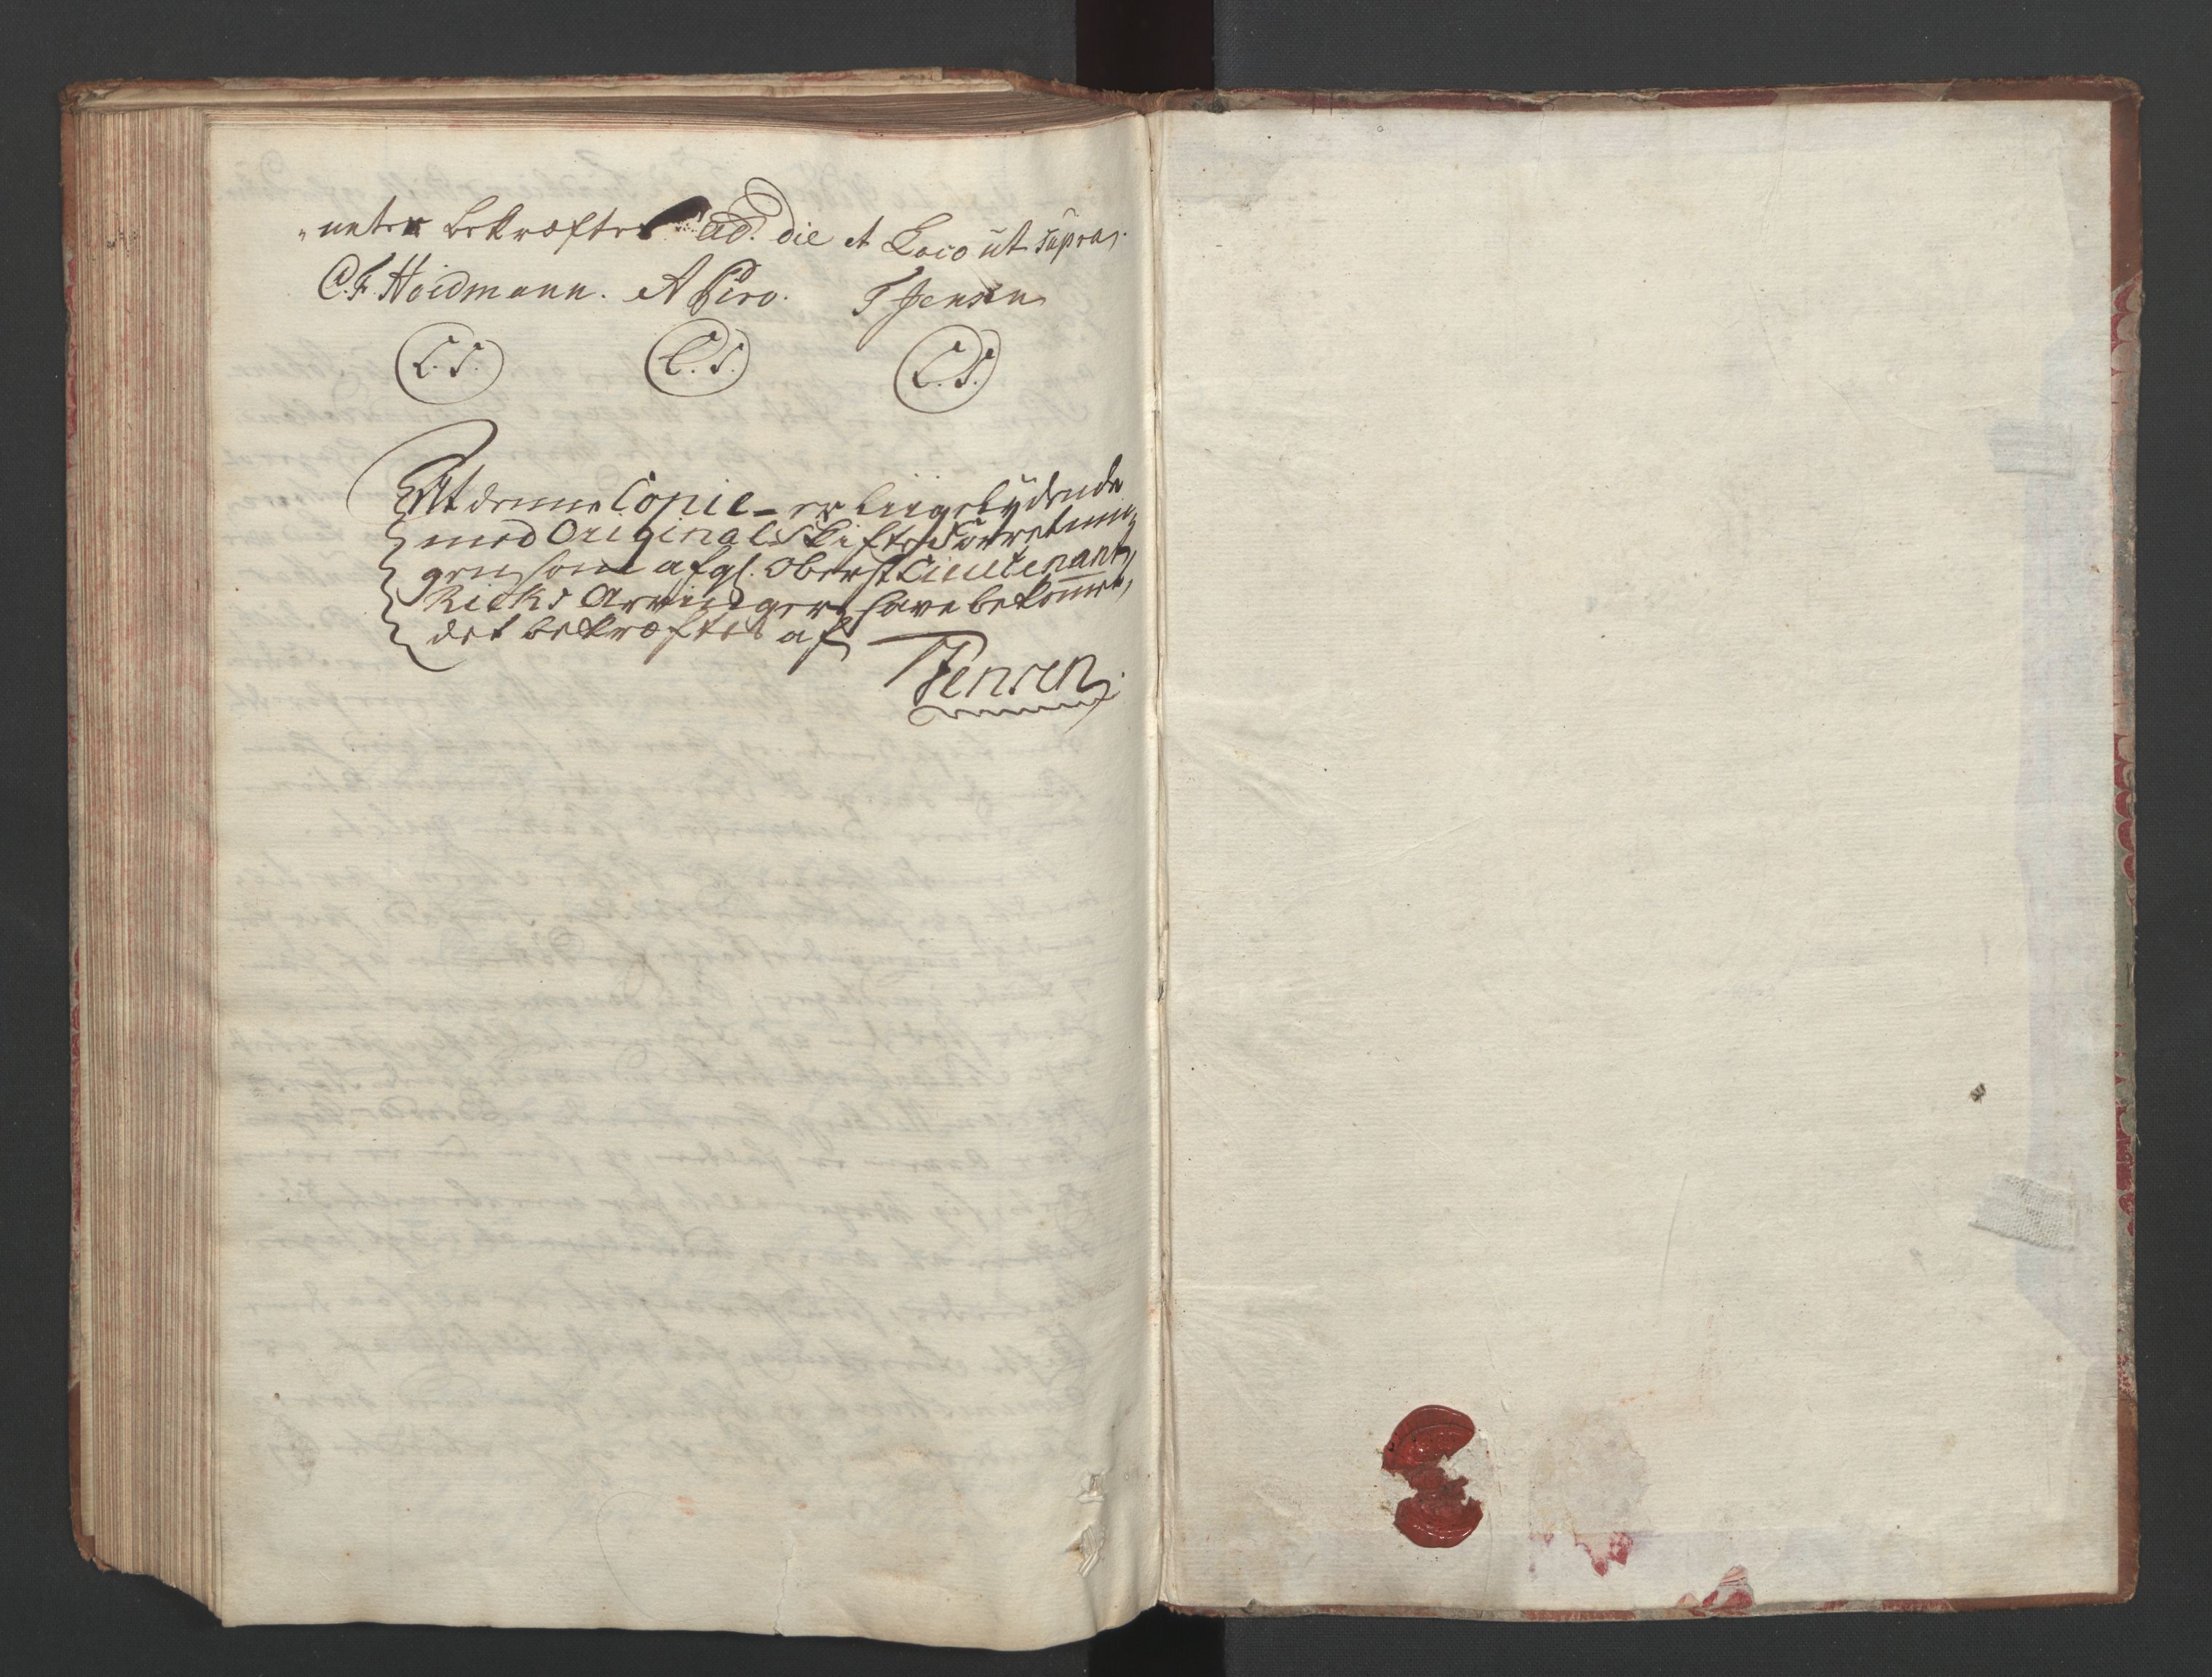 „neter bekræftes ad. die et Loco ut supra.
C.F. Hoidmann. A Piro. T Jensen
L.S. L.S. L.S.
At denne Copie er liigelydende
med Original Skifte Forretnin,
gen som afgl. Oberst Lieutenant
Rieks Arvinger have bekommet,
det bekræftes af
TJensen.